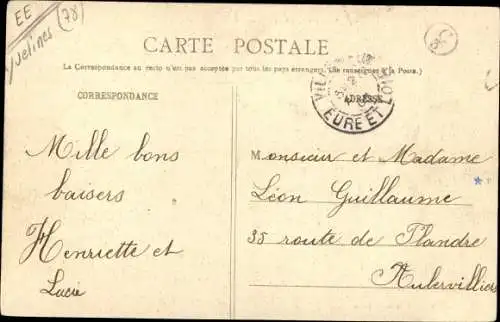 EE
(78)
Yvelines
CARTE POSTALE
La Correspondance au recto n'est pas acceptée par tous les pays étrangers. (Se renseigner à la Poste.)
CORRESPONDANCE
ADRESSE
EURE ET LOIR
Mille bons
baisers
Henriette et
Lucie
Monsieur et Madame
Léon Guillaume
35 route de Flandre
Aubervilliers